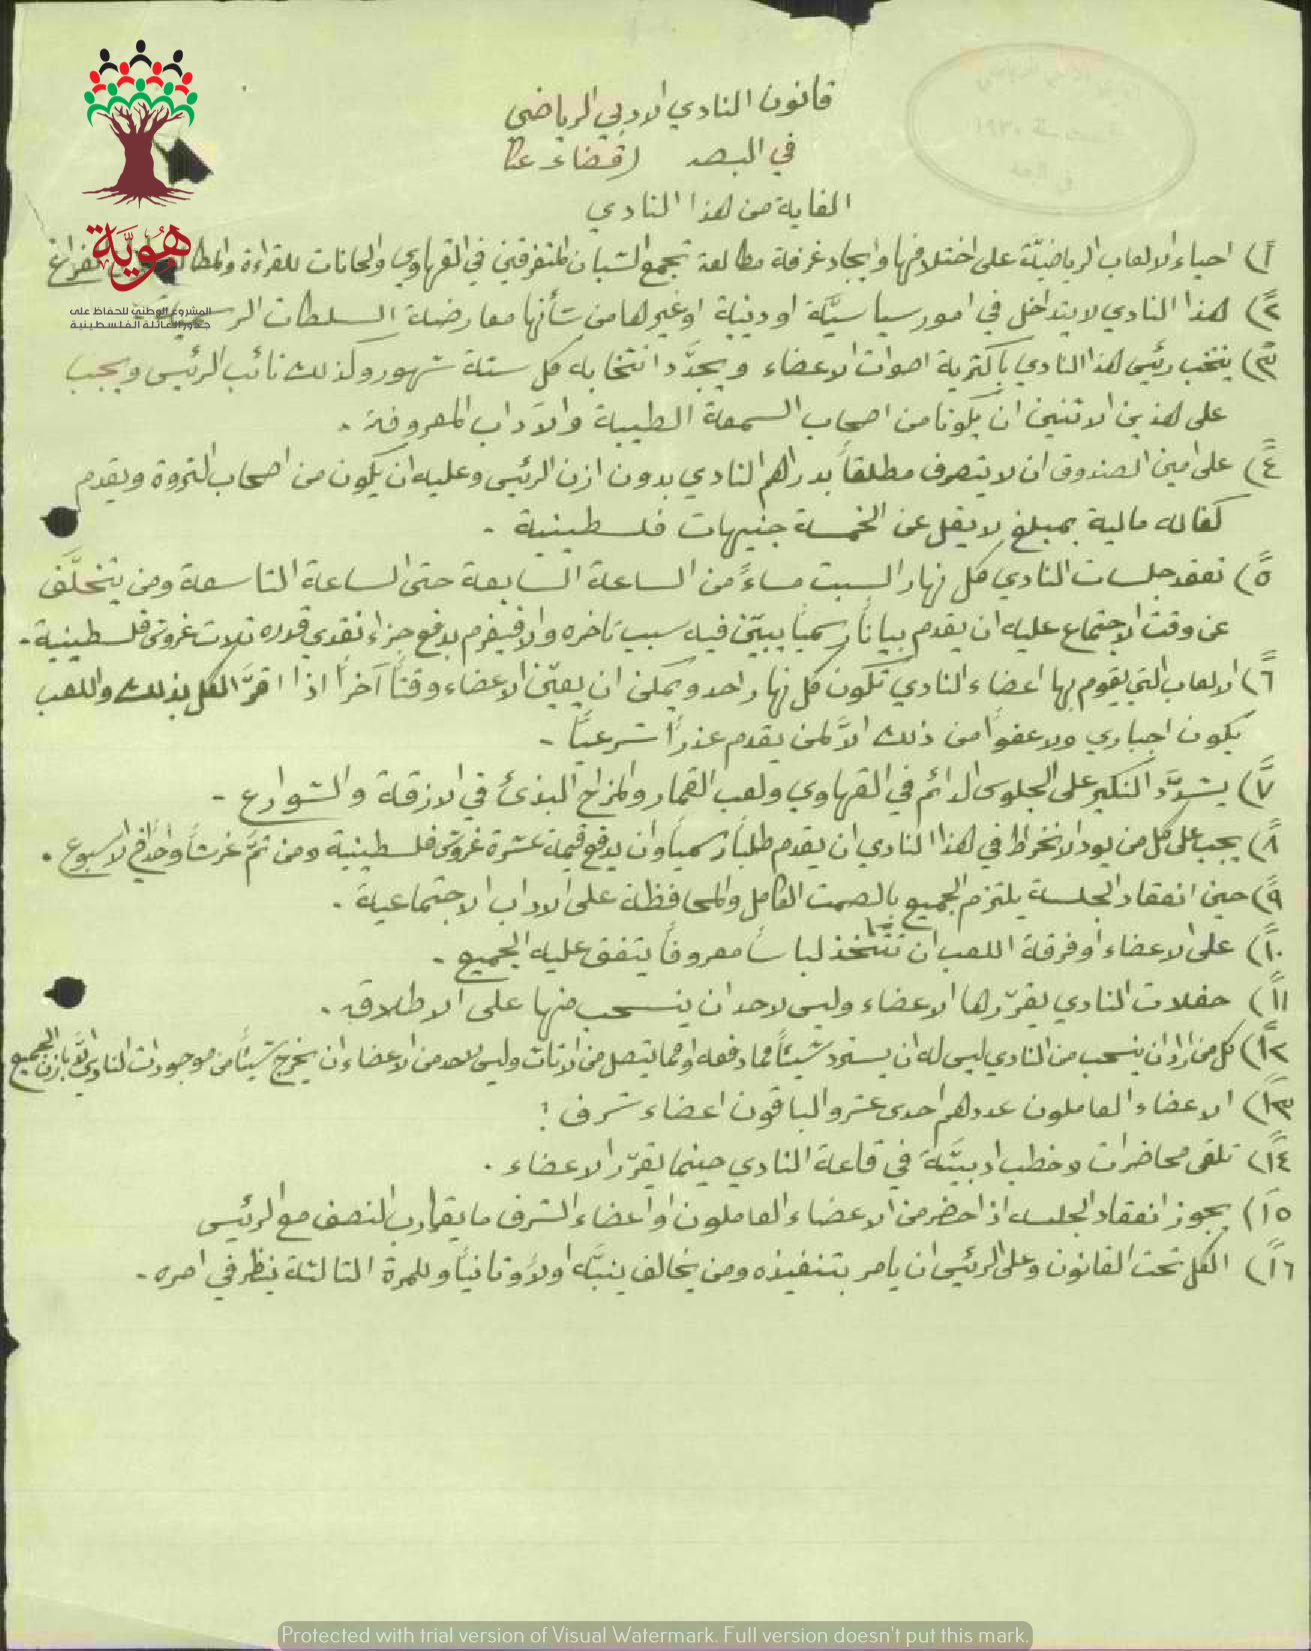 قانون النادي الادبي الرياضي
في البصه (قضاء عكا
الغاية من هذا النادي
١) احياء الالعاب الرياضيَّة على اختلافها وايجاد غرفة مطالعة تجمع الشبان المتفرقين في القهاوي والحانات للقراءة
٢) هذا النادي لا يتداخل في امور سياسيَّة او دينية او غيرها من شأنها معارضة السلطات
٣) ينتخب رئيس هذا النادي باكثرية اصوات الاعضاء ويجدَّد انتخابه كل ستة شهور وكذلك نائب الرئيس ويجب
على هذين الاثنين ان يكونا من اصحاب السمعة الطيبة والآداب المعروفة .
٤) على امين الصندوق ان لا يتصرف مطلقاً بدراهم النادي بدون اذن الرئيس وعليه ان يكون من اصحاب الثروة ويقدم
كفاله مالية بمبلغ لا يقل عن الخمسة جنيهات فلسطينية -
٥) تعقد جلسات النادي كل نهار السبت مساءً من الساعة السابعة حتى الساعة التاسعة ومن يتخلَّف
عن وقت الاجتماع عليه ان يقدم بياناً رسمياً يبيّن فيه سبب تاخره والا فيغرم بدفع جزاء نقدي قدره ثلاث غروش فلسطينية -
٦) الالعاب التي يقوم بها اعضاء النادي تكون كل نهار احد ويمكن ان يعيّن الاعضاء وقتاً آخراً اذا اقرَّ الكل بذلك واللعب
يكون اجباري ولا عفواً من ذلك الاَّ لمن يقدم عذراً شرعيًّا -
٧) يشدَّد النكير على الجلوس الدائم في القهاوي ولعب القمار والمزاح البذئ في الازقة والشوارع -
٨) يجب على كل من يود الانخراط في هذا النادي ان يقدم طلباً رسمياً وان يدفع قيمة عشرة غروش فلسطينية ومن ثمَّ غرشاً واحداً في الاسبوع .
٩) حين انعقاد الجلسة يلتزم الجميع بالصمت الكامل والمحافظة على الاداب الاجتماعية .
١٠) على الاعضاء او فرقة اللعب ان تتخذ لباساً معروفاً يتفق عليه الجميع -
١١) حفلات النادي يقرّرها الاعضاء وليس لاحد ان ينسحب منها على الاطلاق .
١٢) كل من اراد ان ينسحب من النادي ليس له ان يسترد شيئاً مما دفعه او مما يتصل من الاثاث وليس لاحد من الاعضاء ان يخرج شيئاً من موجودات النادي الاَّ باذن الجميع
١٣) الاعضاء العاملون عددهم احدى عشر والباقون اعضاء شرف :
١٤) تلقى محاضرات وخطب ادبيَّة في قاعة النادي حينما يقرّر الاعضاء .
١٥) يجوز انعقاد الجلسه اذا حضر من الاعضاء العاملون او اعضاء الشرف ما يقارب النصف مع الرئيس
١٦) الكل تحت القانون وعلى الرئيس ان يامر بتنفيذه ومن يخالف ينبَّه اولاً وثانياً وللمرة الثالثة ينظر في امره -
هُوِيَّة
المشروع الوطني للحفاظ على
جذور العائلة الفلسطينية
Protected with trial version of Visual Watermark. Full version doesn't put this mark.